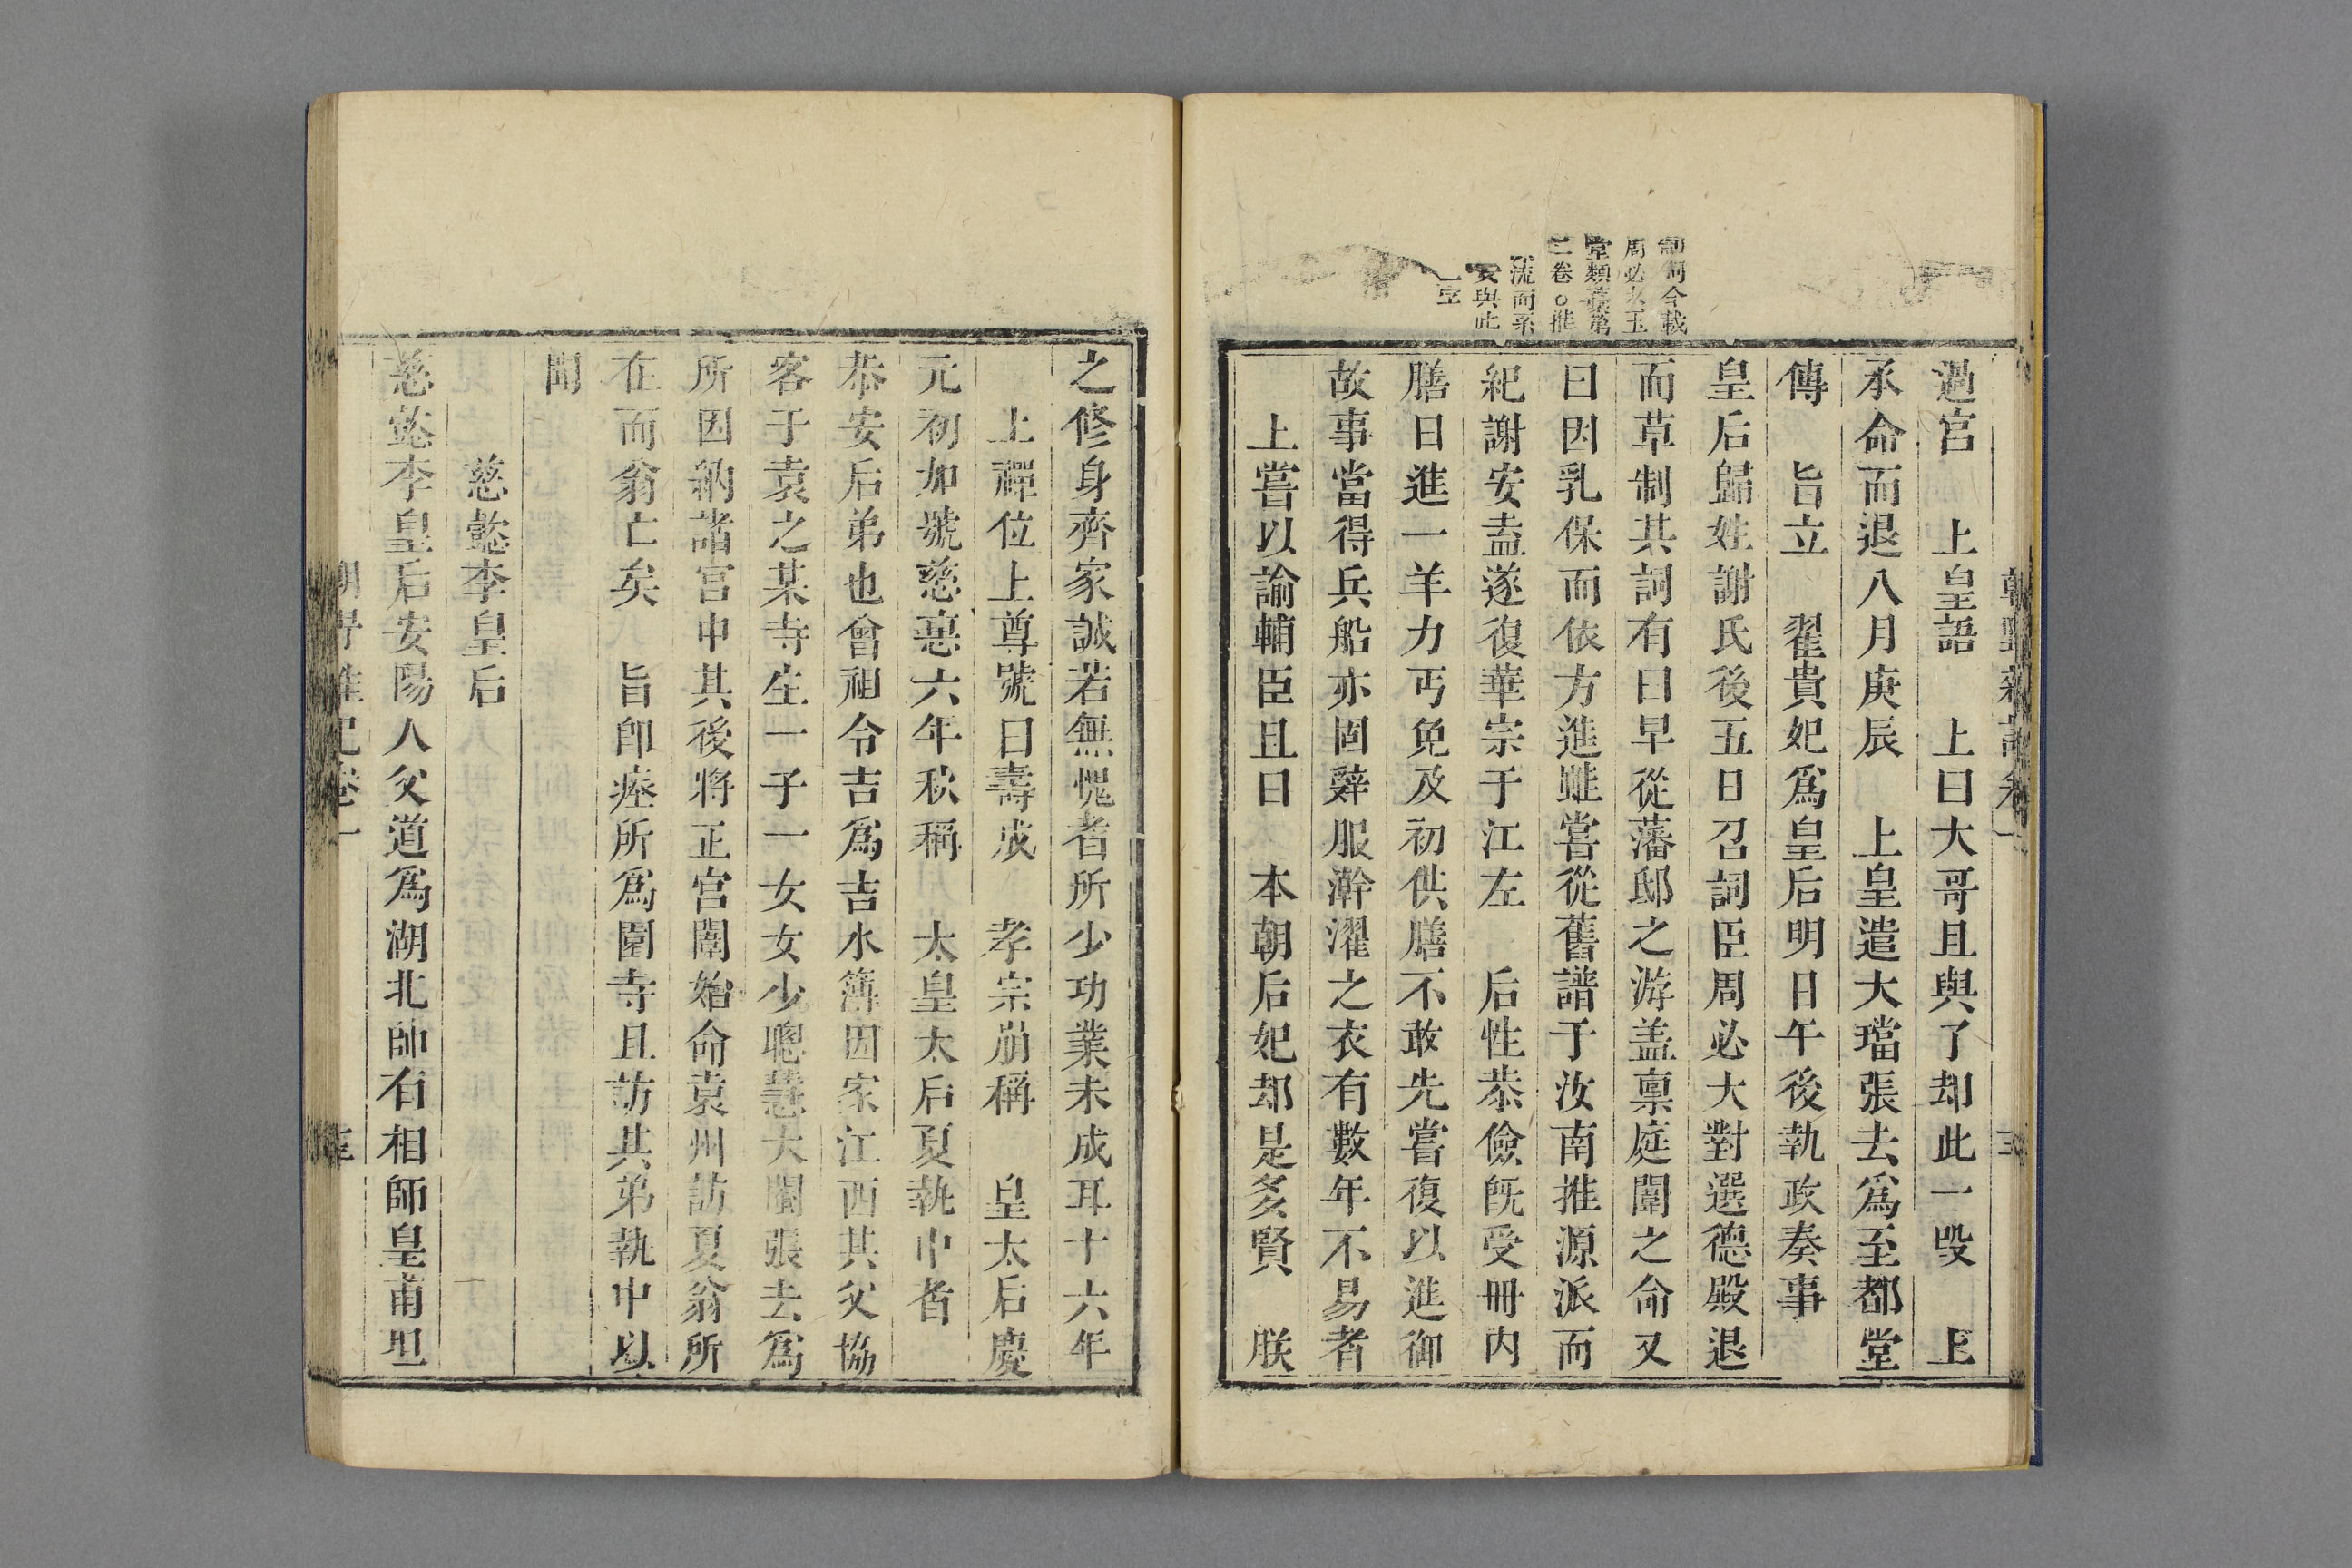 制詞今載
周必大玉
堂類藁第
二卷○推
流而系
安與此
一字
過宫　上皇語　上曰大哥且與了却此一段　上
承命而退八月庚辰　上皇遣大璫張去爲至都堂
傳　旨立　翟貴妃爲皇后明日午後執政奏事
皇后歸姓謝氏後五日召詞臣周必大對選德殿退
而草制其詞有曰早從藩邸之游盖禀庭闈之命又
曰因乳保而依方進雖嘗從舊譜于汝南推源派而
紀謝安盍遂復華宗于江左　后性恭儉旣受冊内
膳日進一羊力丐免及初供膳不敢先嘗復以進御
故事當得兵船亦固辭服澣濯之衣有數年不易者
上嘗以諭輔臣且曰　本朝后妃却是多賢　朕
之修身齊家誠若無愧者所少功業未成耳十六年
上禪位上尊號曰壽成　孝宗崩稱　皇太后慶
元初加號慈惠六年秋稱　太皇太后夏執中者
恭安后弟也曾祖令吉爲吉水簿因家江西其父協
客于袁之某寺生一子一女女少聰慧大閹張去爲
所因納諸宫中其後將正宫闈始命袁州訪夏翁所
在而翁亡矣　旨卽瘞所爲園寺且訪其弟執中以
聞
慈懿李皇后
慈懿李皇后安陽人父道爲湖北帥有相師皇甫坦